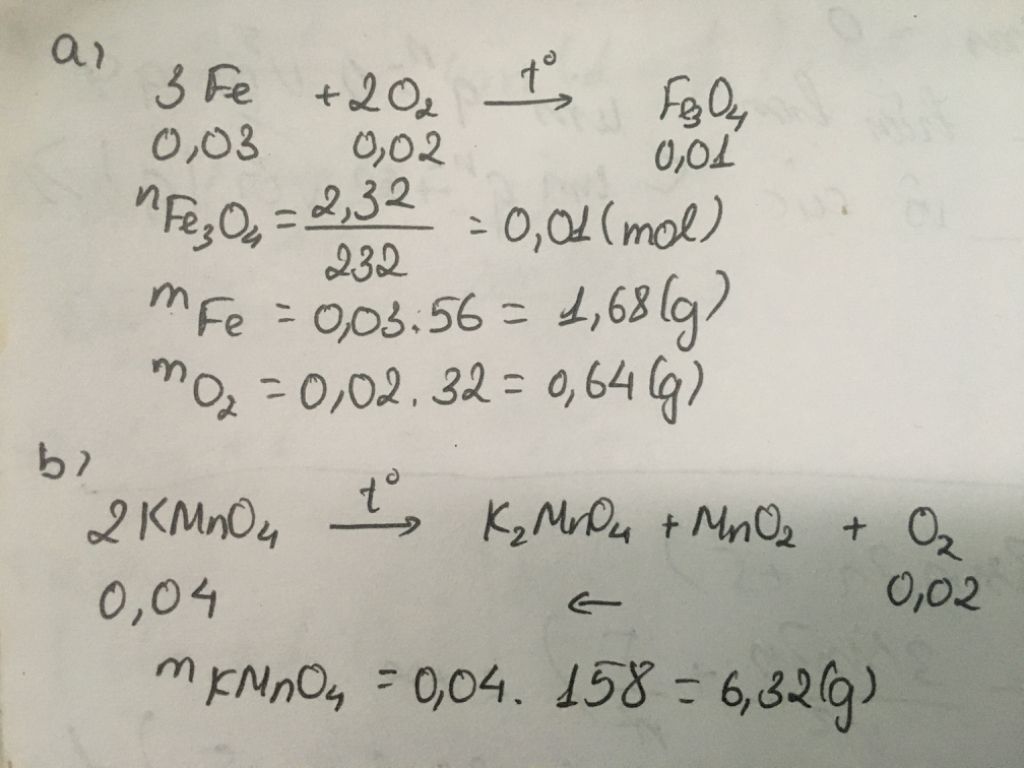 a)
3 Fe + 2O₂ —t°→ Fe₃O₄
0,03 0,02 0,01
nFe₃O₄ = 2,32/232 = 0,01 (mol)
mFe = 0,03.56 = 1,68 (g)
mO₂ = 0,02.32 = 0,64 (g)
b)
2KMnO₄ —t°→ K₂MnO₄ + MnO₂ + O₂
0,04 ← 0,02
mKMnO₄ = 0,04. 158 = 6,32 (g)